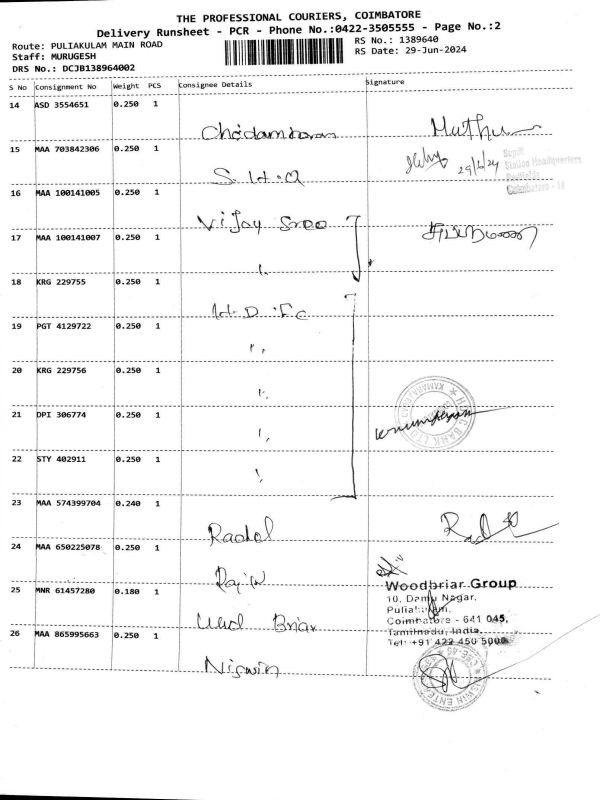 THE PROFESSIONAL COURIERS, COIMBATORE
Delivery Runsheet - PCR - Phone No.:0422-3505555 - Page No.:2
Route: PULIAKULAM MAIN ROAD
Staff: MURUGESH
DRS No.: DCJB138964002
RS No.: 1389640
RS Date: 29-Jun-2024
S No Consignment No Weight PCS Consignee Details Signature
14 ASD 3554651 0.250 1
Chidambaram Muthu
15 MAA 703842306 0.250 1
S.H.Q 29/6/24
Station Headquarters
Coimbatore - 18
16 MAA 100141005 0.250 1
Vijay Sree
17 MAA 100141007 0.250 1
"
18 KRG 229755 0.250 1
H.D.F.C
19 PGT 4129722 0.250 1
"
20 KRG 229756 0.250 1
"
21 DPI 306774 0.250 1
"
22 STY 402911 0.250 1
"
23 MAA 574399704 0.240 1
24 MAA 650225078 0.250 1
25 MNR 61457280 0.180 1
Woodbriar Group
10, Damu Nagar,
Puliakulam,
Coimbatore - 641 045,
Tamilnadu, India.
Tel: +91 422 450 5000
26 MAA 865995663 0.250 1